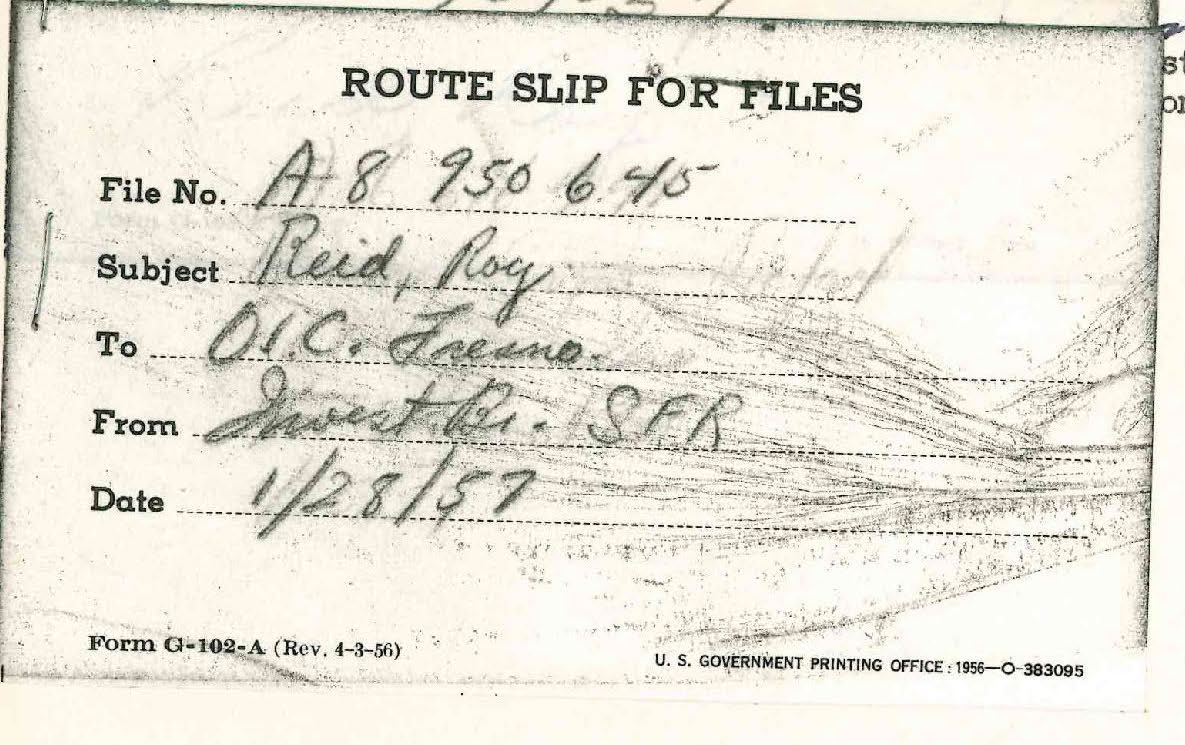 ROUTE SLIP FOR FILES
File No. A 8 950 645
Subject Reid, Roy
To O.I.C. Fresno.
From Invest. Br. SFR
Date 1/28/57
Form G-102-A (Rev. 4-3-56)
U. S. GOVERNMENT PRINTING OFFICE : 1956—O-383095